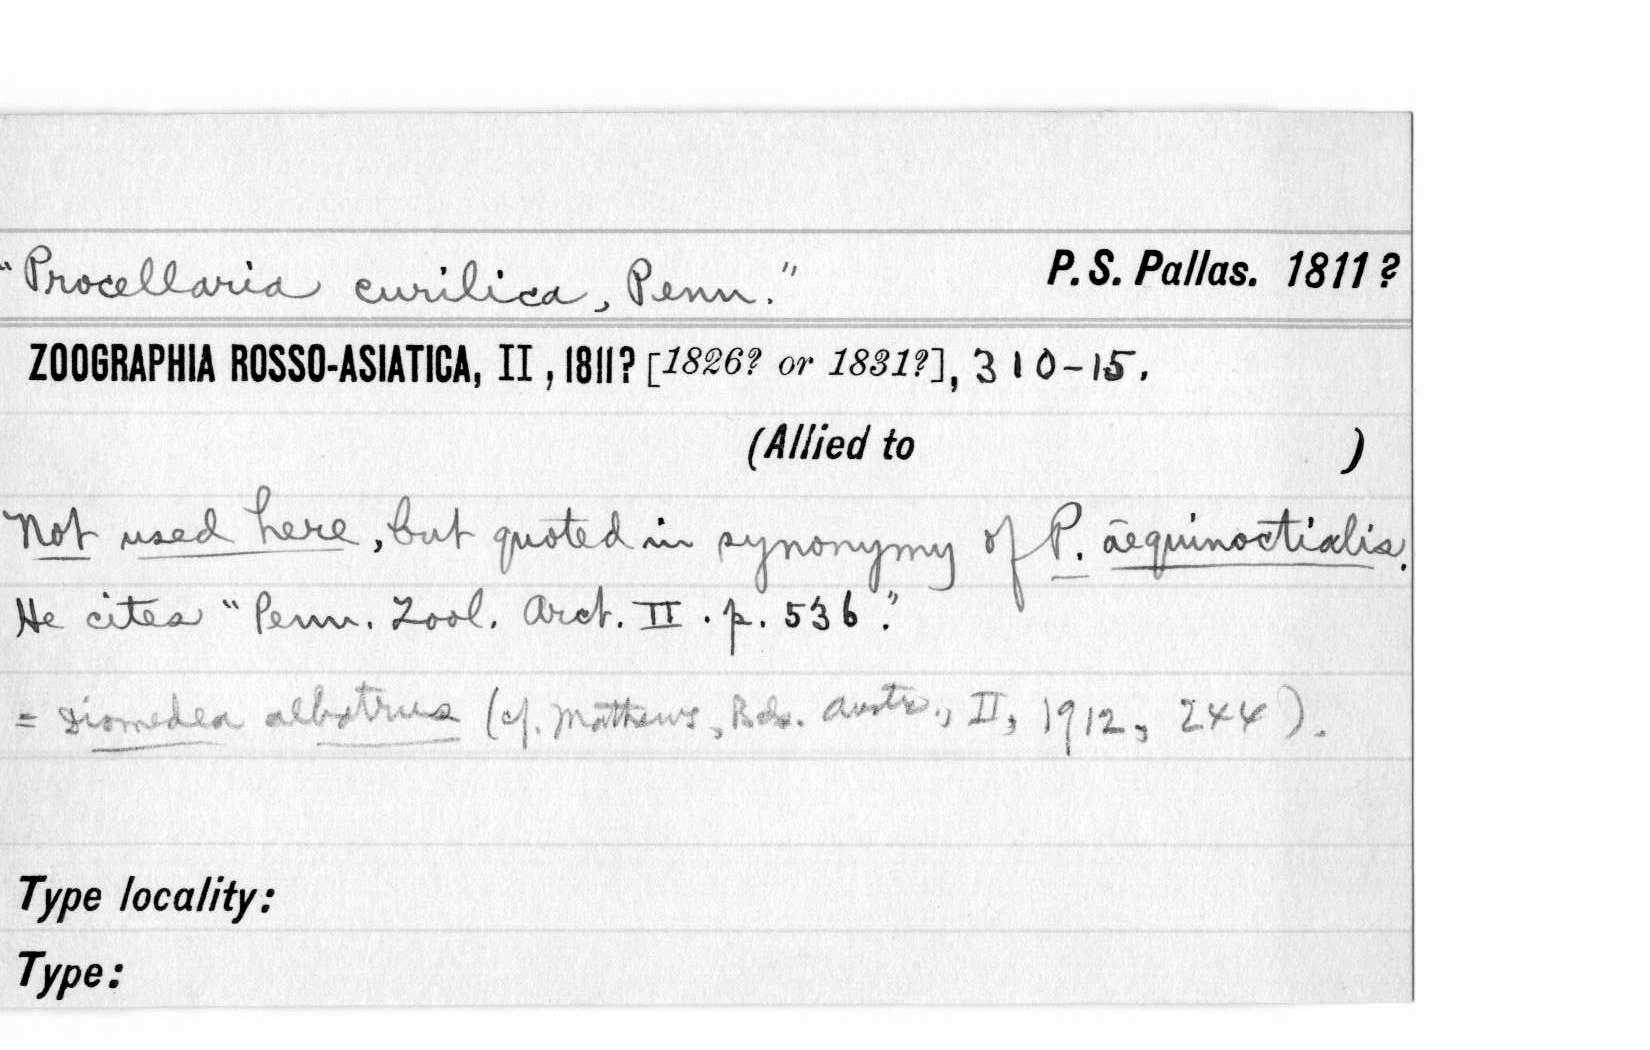 "Procellaria curilica, Penn." P. S. Pallas. 1811 ?
ZOOGRAPHIA ROSSO-ASIATICA, II, 1811? [1826? or 1831?], 310-15.
(Allied to )
Not used here, but quoted in synonymy of P. aequinoctialis.
He cites "Penn. Zool. Arct. II. p. 536."
= Diomedea albatrus (cf. Mathews, Bds. Austr., II, 1912, 244).
Type locality:
Type: